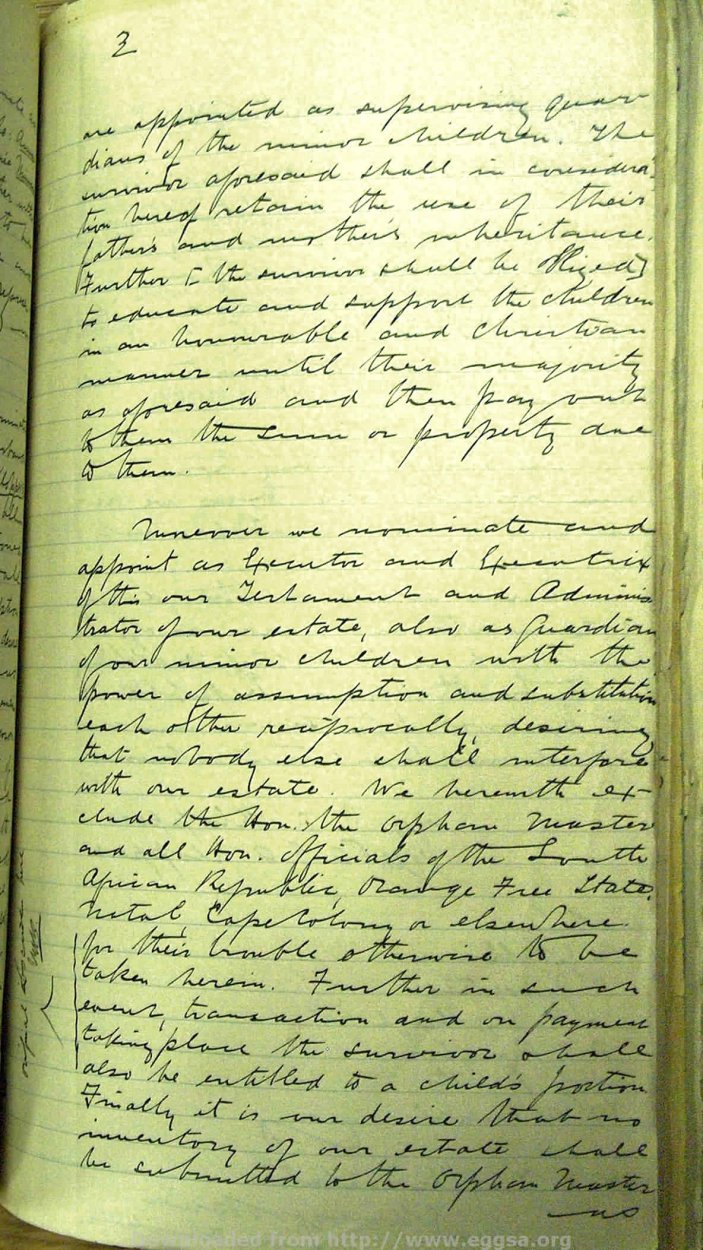 2
are appointed as supervising guar
dians of the minor children. The
survivor aforesaid shall in considera
tion hereof retain the use of their
father's and mother's inheritance.
Further the survivor shall be obliged
to educate and support the children
in an honourable and christian
manner until their majority
as aforesaid and then pay out
to them the sum or property due
to them.
Moreover we nominate and
appoint as Executor and Executrix
of this our Testament and Adminis
trator of our estate, also as Guardian
of our minor children with the
power of assumption and substitution
each other reciprocally, desiring
that nobody else shall interfere
with our estate. We herewith ex
clude the Hon. the Orphan Master
and all Hon. Officials of the South
African Republic, Orange Free State,
Natal, Cape Colony or elsewhere
for their trouble otherwise to be
taken herein. Further in such
event, transaction and on payment
taking place the survivor shall
also be entitled to a child's portion
Finally it is our desire that no
inventory of our estate shall
be submitted to the Orphan Master
as
Downloaded from http://www.eggsa.org